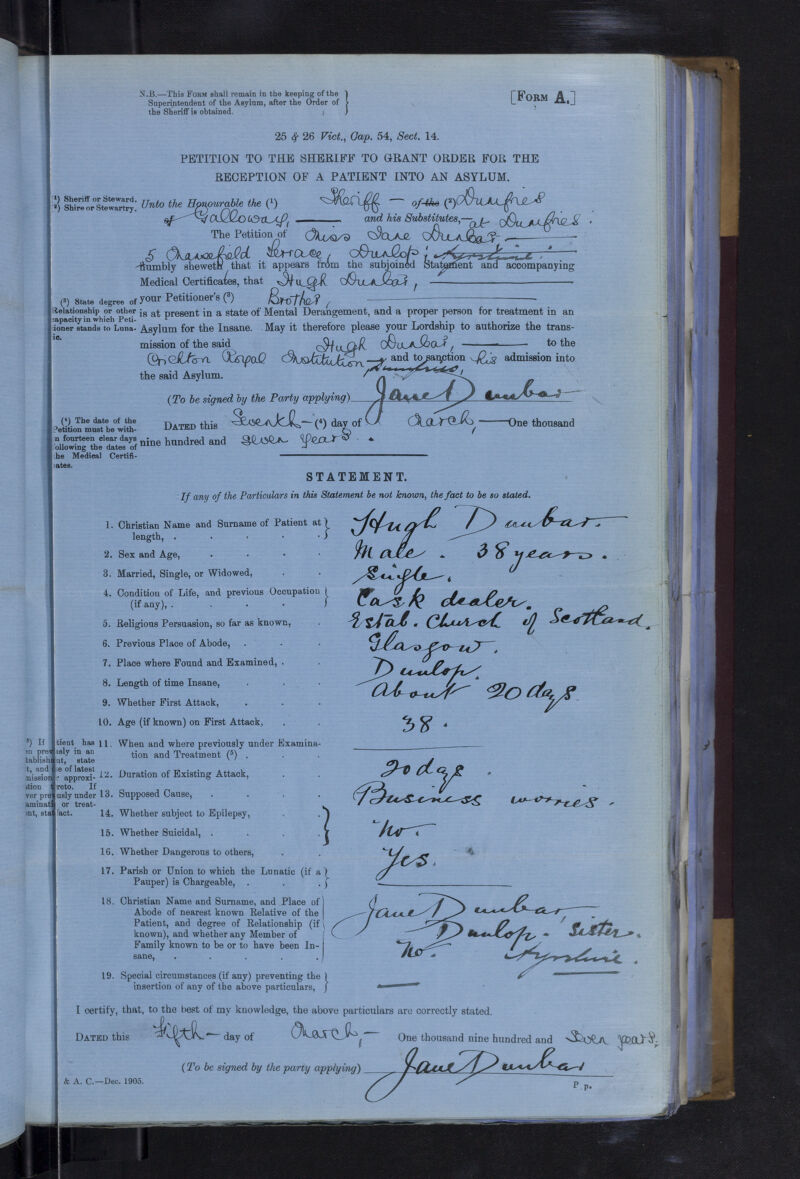 N.B.—This Form shall remain in the keeping of the
Superintendent of the Asylum, after the Order of
the Sheriff is obtained.
[Form A.]
25 & 26 Vict., Cap. 54, Sect. 14.
PETITION TO THE SHERIFF TO GRANT ORDER FOR THE
RECEPTION OF A PATIENT INTO AN ASYLUM.
¹) Sheriff or Steward.
²) Shire or Stewartry.
Unto the Honourable the (¹) Sheriff — of the (²) Dumfries
of Galloway, — and his Substitutes,— at Dumfries.
The Petition of Miss Jane Dunbar, —
5 Chancefield Terrace, Dunlop, Ayrshire.
Humbly sheweth that it appears from the subjoined Statement and accompanying
Medical Certificates, that Hugh Dunbar, —
(³) State degree of
Relationship or other
capacity in which Peti-
ioner stands to Luna-
ic.
your Petitioner's (³) Brother, —
is at present in a state of Mental Derangement, and a proper person for treatment in an
Asylum for the Insane. May it therefore please your Lordship to authorize the trans-
mission of the said Hugh Dunbar, — to the
Crichton Royal Institution, Dumfries, and to sanction his admission into
the said Asylum.
(To be signed by the Party applying) Jane Dunbar
(⁴) The date of the
Petition must be with-
n fourteen clear days
ollowing the dates of
he Medical Certifi-
ates.
Dated this Seventh — (⁴) day of March, — One thousand
nine hundred and seven years.
STATEMENT.
If any of the Particulars in this Statement be not known, the fact to be so stated.
1. Christian Name and Surname of Patient at
length, . Hugh Dunbar.
2. Sex and Age, Male. 38 years.
3. Married, Single, or Widowed, Single.
4. Condition of Life, and previous Occupation
(if any), . Cask dealer.
5. Religious Persuasion, so far as known, Estab. Church of Scotland.
6. Previous Place of Abode, Glasgow.
7. Place where Found and Examined, . Dunlop.
8. Length of time Insane, About 20 days
9. Whether First Attack,
10. Age (if known) on First Attack, 38.
⁵) If tient has
n prev sly in an
tablishm nt, state
t, and e of latest
mission r approxi-
tion reto. If
ver prev usly under
aminati or treat-
nt, stat act.
11. When and where previously under Examina-
tion and Treatment (⁵) . —
12. Duration of Existing Attack, 20 days.
13. Supposed Cause, Business worries.
14. Whether subject to Epilepsy,
15. Whether Suicidal, . No.
16. Whether Dangerous to others, Yes.
17. Parish or Union to which the Lunatic (if a
Pauper) is Chargeable, . —
18. Christian Name and Surname, and Place of
Abode of nearest known Relative of the
Patient, and degree of Relationship (if
known), and whether any Member of
Family known to be or to have been In-
sane,
Jane Dunbar,
Dunlop - Sister.
No. Ayrshire.
19. Special circumstances (if any) preventing the
insertion of any of the above particulars, —
I certify, that, to the best of my knowledge, the above particulars are correctly stated.
Dated this Fifth — day of March, — One thousand nine hundred and Seven years.
(To be signed by the party applying) Jane Dunbar
& A. C.—Dec. 1905.
P.p.